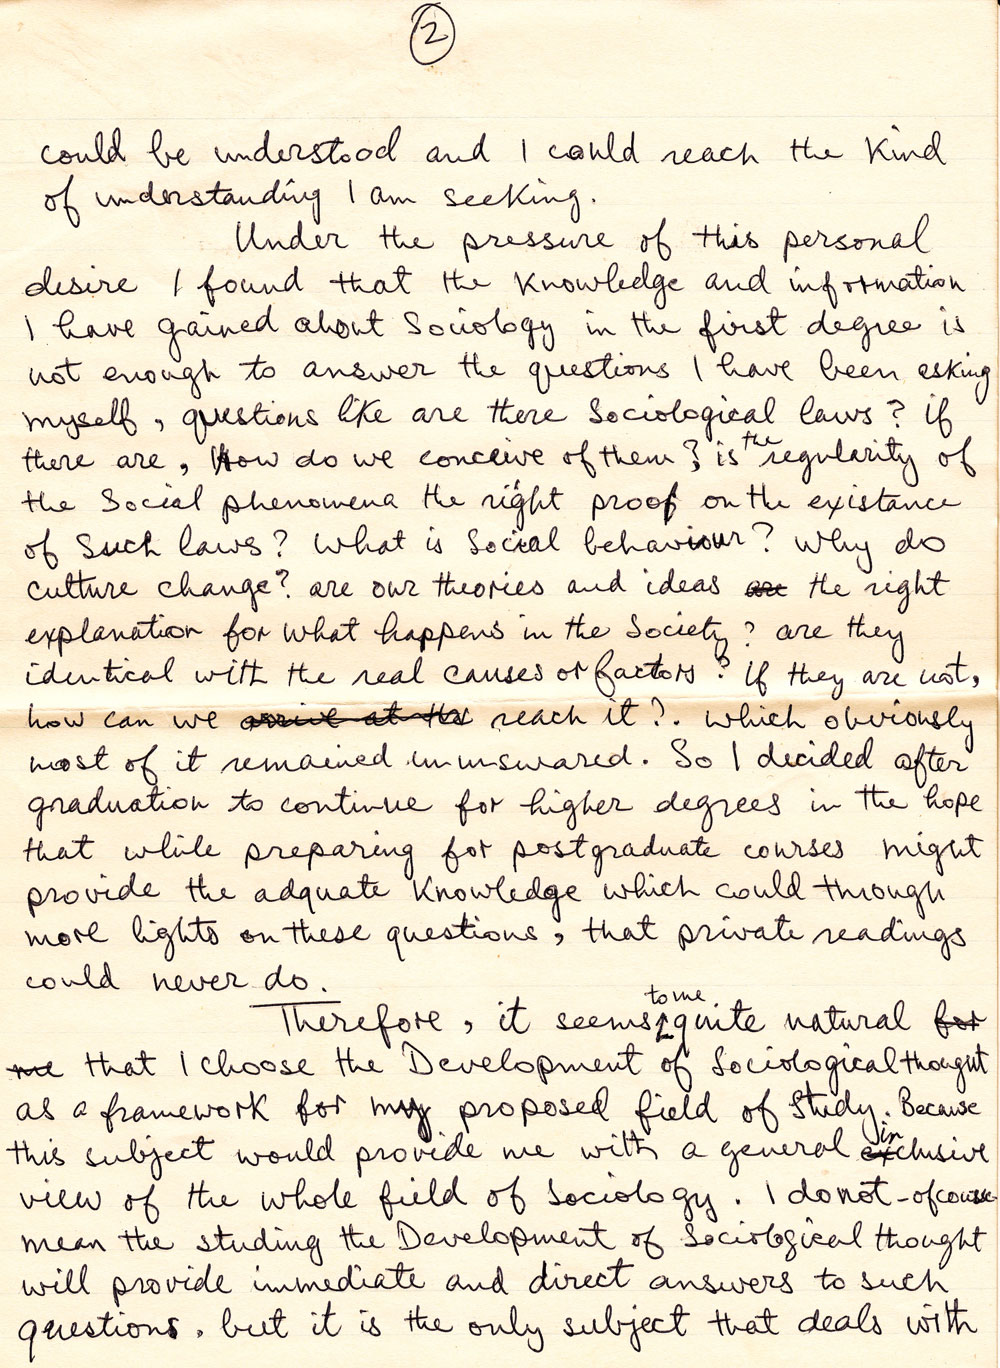 2
could be understood and I could reach the kind
of understanding I am seeking.
Under the pressure of this personal
desire I found that the knowledge and information
I have gained about Sociology in the first degree is
not enough to answer the questions I have been asking
myself, questions like are there Sociological laws? if
there are, How do we conceive of them?, is the regularity of
the Social phenomena the right proof on the existance
of such laws? What is Social behaviour? Why do
culture change? are our theories and ideas are the right
explanation for what happens in the Society? are they
identical with the real causes or factors? If they are not,
how can we arrive at the reach it?. which obviously
most of it remained unanswared. So I decided after
graduation to continue for higher degrees in the hope
that while preparing for postgraduate courses might
provide the adquate knowledge which could through
more lights on these questions, that private readings
could never do.
Therefore, it seems to me quite natural for
me that I choose the Development of Sociological thought
as a framework for my proposed field of Study. Because
this subject would provide me with a general inclusive
view of the whole field of Sociology. I do not - ofcourse
mean the studing the Development of Sociological thought
will provide immediate and direct answers to such
questions. but it is the only subject that deals with